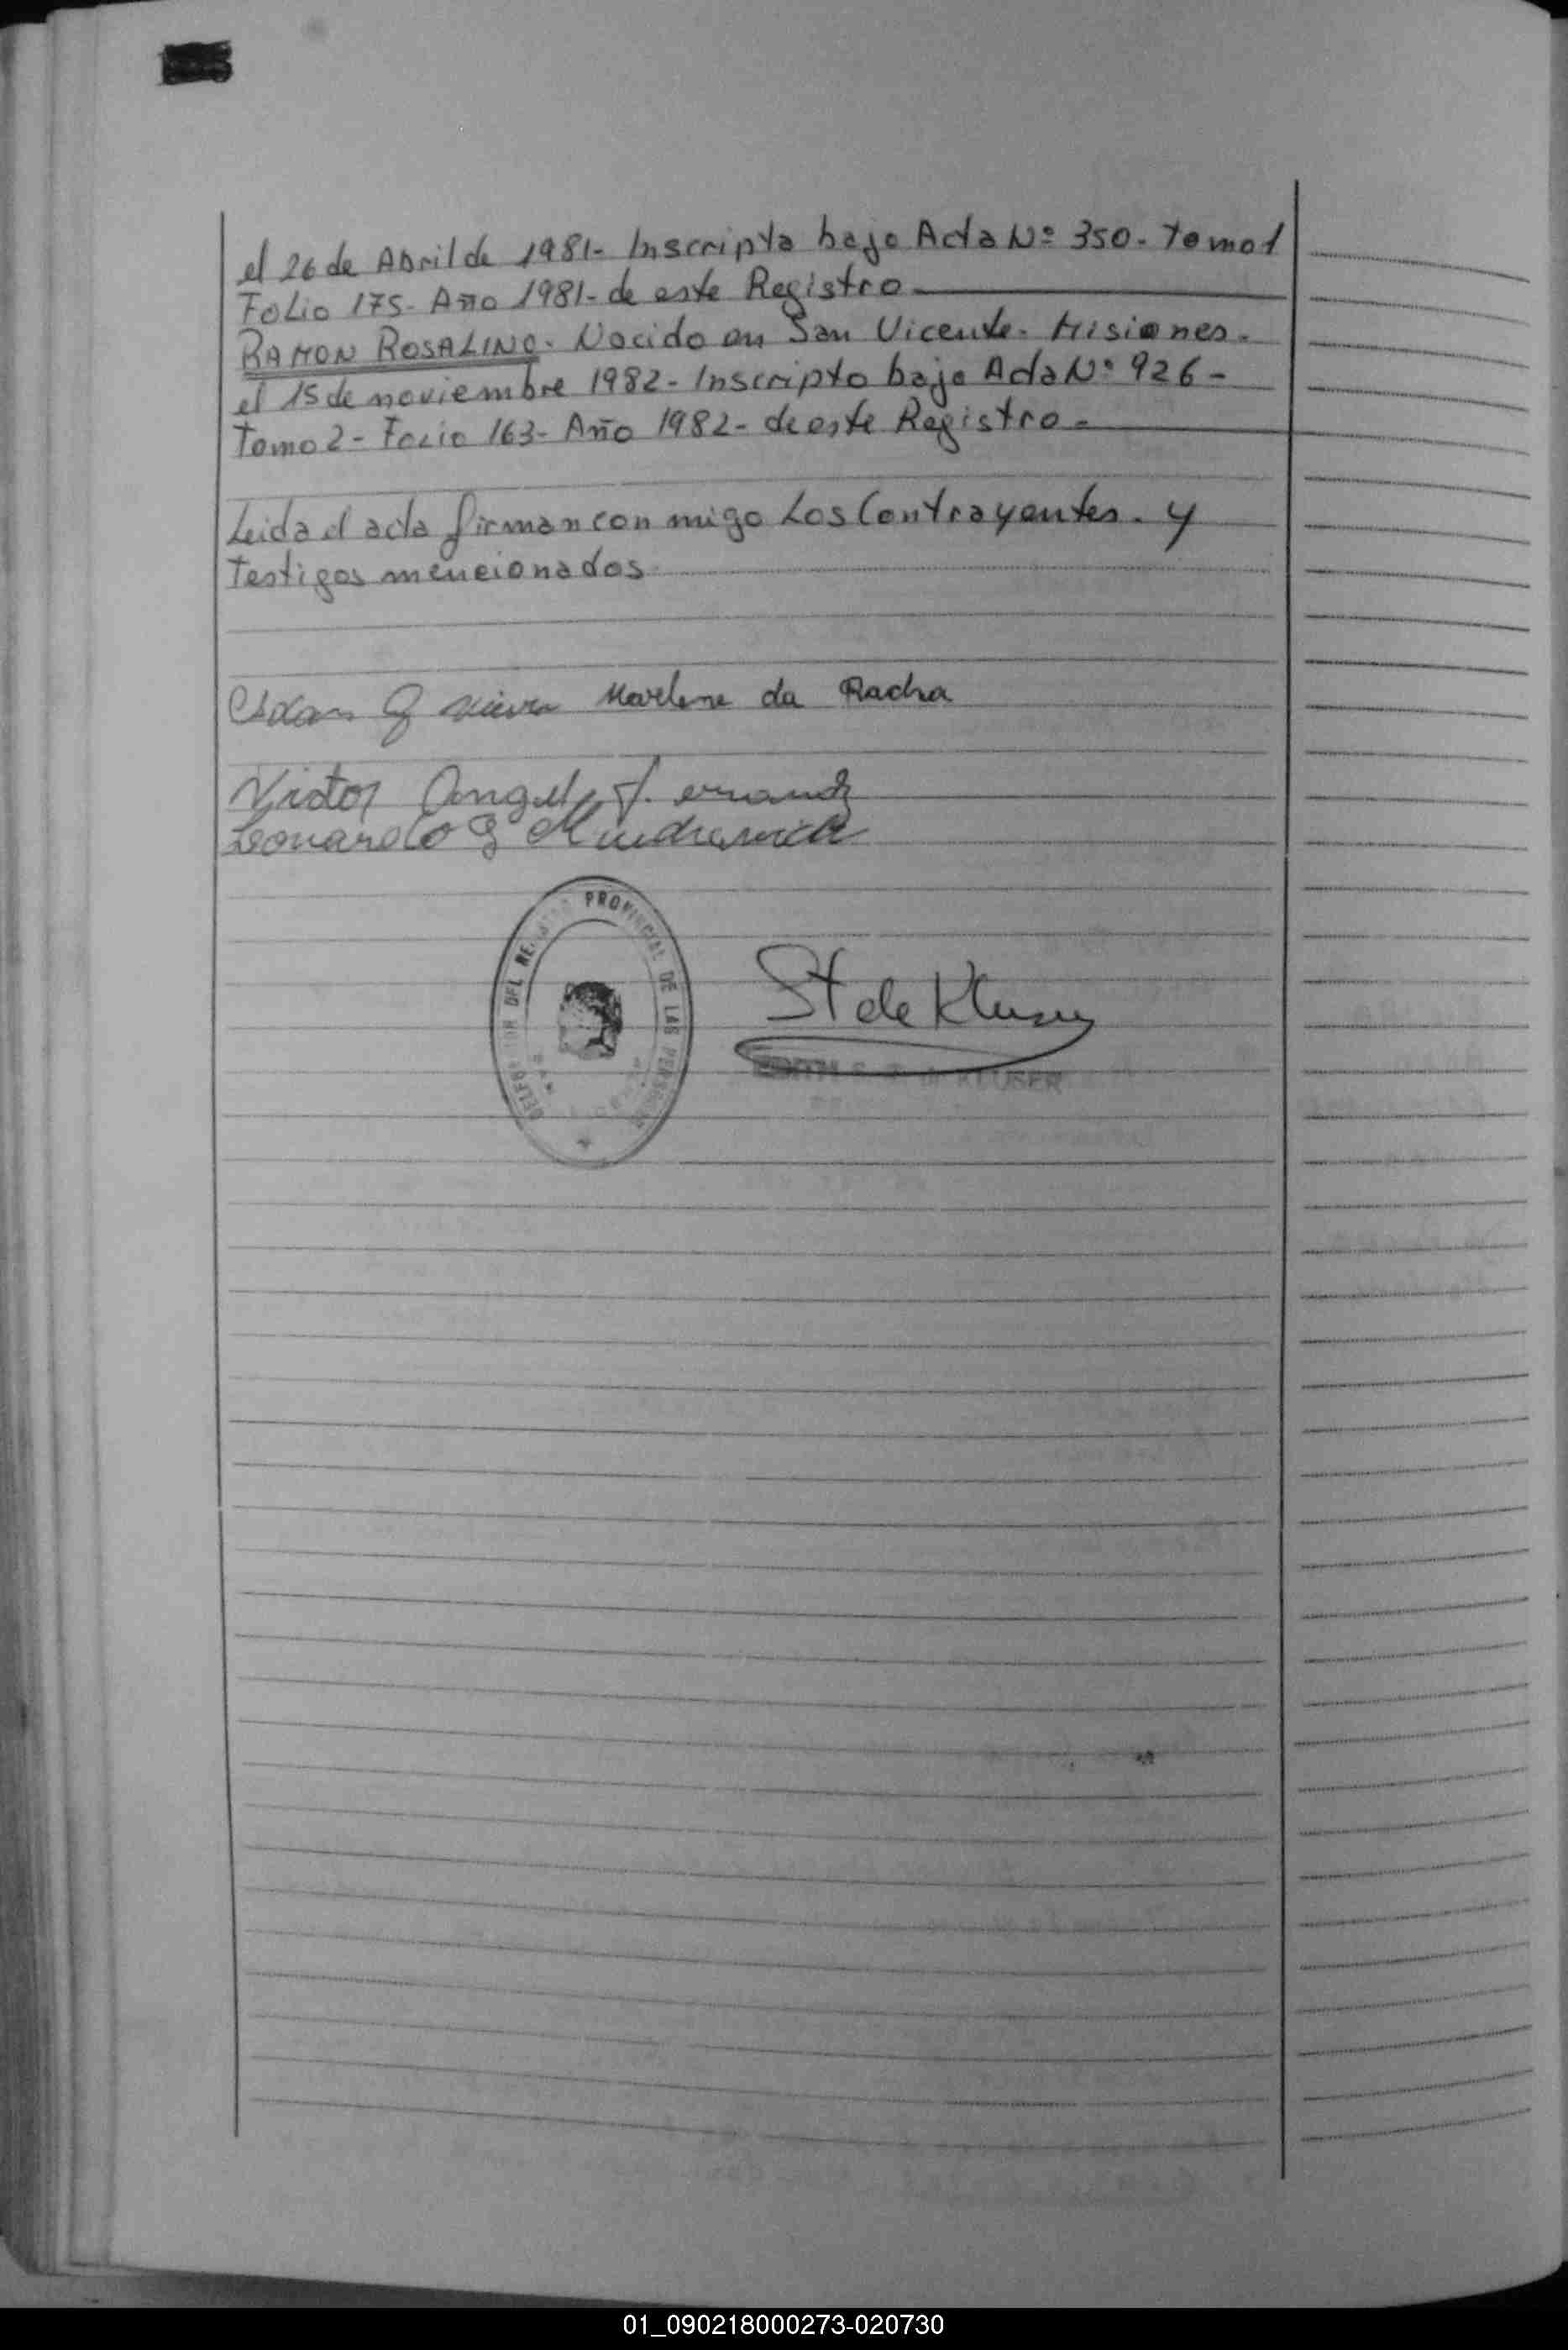 el 26 de Abril de 1981- Inscripta bajo Acta Nº 350- Tomo 1
Folio 175- Año 1981- de este Registro
RAMON ROSALINO- Nacido en San Vicente- Misiones-
el 15 de noviembre 1982- Inscripto bajo Acta Nº 926-
Tomo 2- Folio 163- Año 1982- de este Registro-
Leida el acta firman con migo Los Contrayentes- y
Testigos mencionados
Marlene da Racha
Victor Angel
Leonardo
PROVINCIAL DE LAS PERSONAS
DEL
St de Kluser
KLUSER
01_090218000273-020730